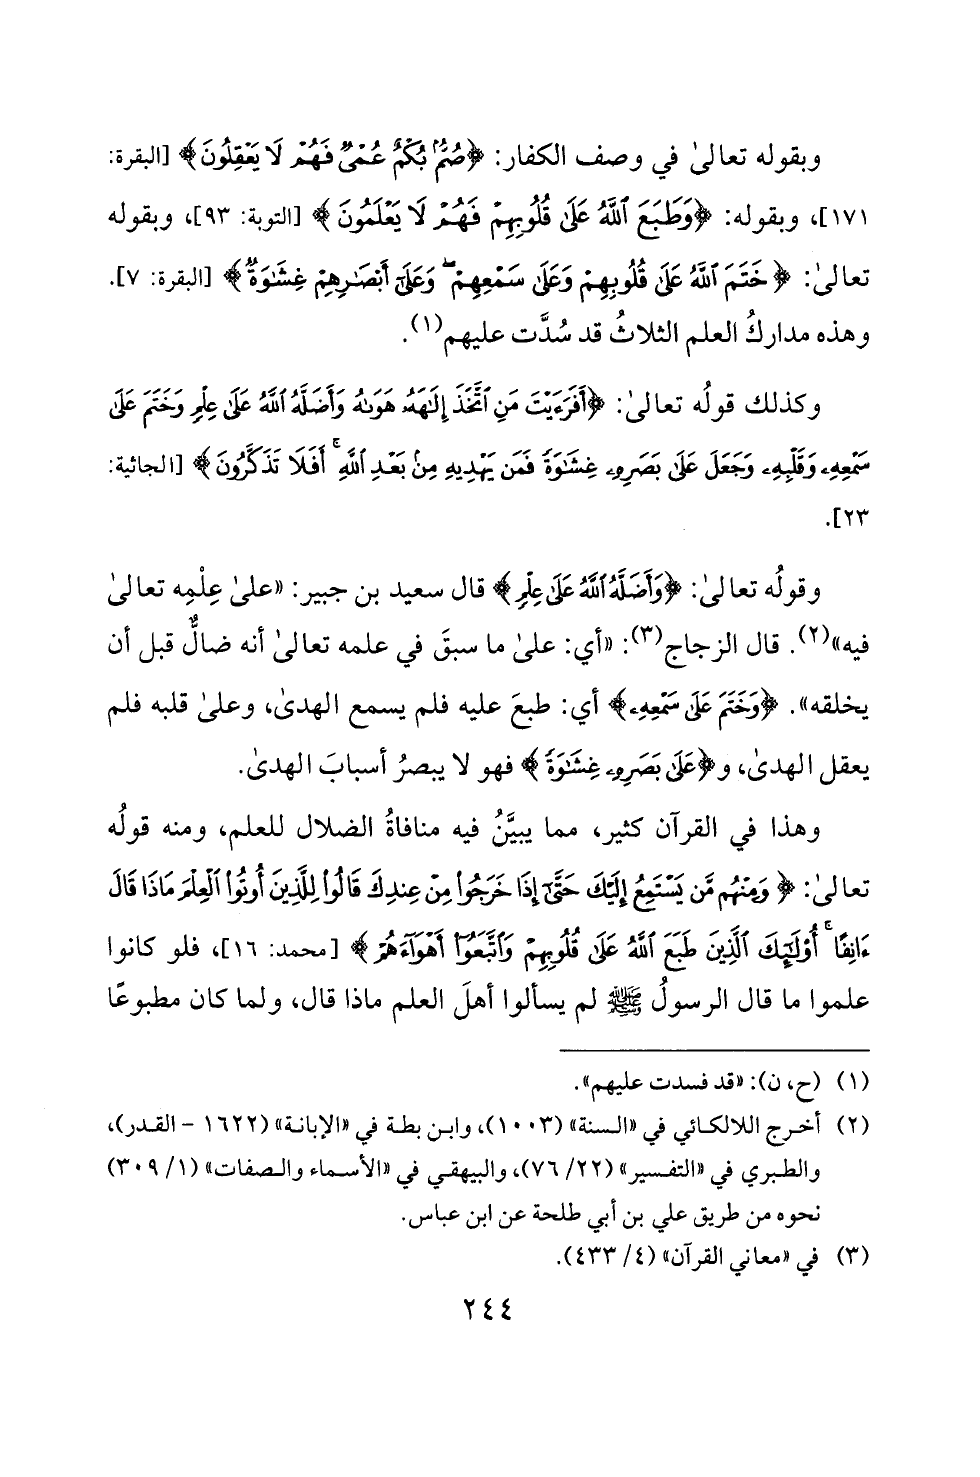 وبقوله تعالىٰ في وصف الكفار: ﴿صُمٌّۢ بُكْمٌ عُمْىٌ فَهُمْ لَا يَعْقِلُونَ﴾ [البقرة:
١٧١]، وبقوله: ﴿وَطَبَعَ ٱللَّهُ عَلَىٰ قُلُوبِهِمْ فَهُمْ لَا يَعْلَمُونَ﴾ [التوبة: ٩٣]، وبقوله
تعالىٰ: ﴿خَتَمَ ٱللَّهُ عَلَىٰ قُلُوبِهِمْ وَعَلَىٰ سَمْعِهِمْ ۖ وَعَلَىٰٓ أَبْصَٰرِهِمْ غِشَٰوَةٌ ۖ﴾ [البقرة: ٧].
وهذه مداركُ العلم الثلاثُ قد سُدَّت عليهم(١).
وكذلك قولُه تعالىٰ: ﴿أَفَرَءَيْتَ مَنِ ٱتَّخَذَ إِلَٰهَهُۥ هَوَىٰهُ وَأَضَلَّهُ ٱللَّهُ عَلَىٰ عِلْمٍ وَخَتَمَ عَلَىٰ
سَمْعِهِۦ وَقَلْبِهِۦ وَجَعَلَ عَلَىٰ بَصَرِهِۦ غِشَٰوَةً فَمَن يَهْدِيهِ مِنۢ بَعْدِ ٱللَّهِ ۚ أَفَلَا تَذَكَّرُونَ﴾ [الجاثية:
٢٣].
وقولُه تعالىٰ: ﴿وَأَضَلَّهُ ٱللَّهُ عَلَىٰ عِلْمٍ﴾ قال سعيد بن جبير: «علىٰ عِلْمِه تعالىٰ
فيه»(٢). قال الزجاج(٣): «أي: علىٰ ما سبقَ في علمه تعالىٰ أنه ضالٌّ قبل أن
يخلقه». ﴿وَخَتَمَ عَلَىٰ سَمْعِهِۦ﴾ أي: طبعَ عليه فلم يسمع الهدىٰ، وعلىٰ قلبه فلم
يعقل الهدىٰ، و﴿عَلَىٰ بَصَرِهِۦ غِشَٰوَةً﴾ فهو لا يبصرُ أسبابَ الهدىٰ.
وهذا في القرآن كثير، مما يبيَّنُ فيه منافاةُ الضلال للعلم، ومنه قولُه
تعالىٰ: ﴿وَمِنْهُم مَّن يَسْتَمِعُ إِلَيْكَ حَتَّىٰٓ إِذَا خَرَجُوا۟ مِنْ عِندِكَ قَالُوا۟ لِلَّذِينَ أُوتُوا۟ ٱلْعِلْمَ مَاذَا قَالَ
ءَانِفًا ۚ أُو۟لَٰٓئِكَ ٱلَّذِينَ طَبَعَ ٱللَّهُ عَلَىٰ قُلُوبِهِمْ وَٱتَّبَعُوٓا۟ أَهْوَآءَهُمْ﴾ [محمد: ١٦]، فلو كانوا
علموا ما قال الرسولُ ﷺ لم يسألوا أهلَ العلم ماذا قال، ولما كان مطبوعًا
(١) (ح، ن): «قد فسدت عليهم».
(٢) أخرج اللالكائي في «السنة» (١٠٠٣)، وابن بطة في «الإبانة» (١٦٢٢ - القدر)،
والطبري في «التفسير» (٢٢/ ٧٦)، والبيهقي في «الأسماء والصفات» (١/ ٣٠٩)
نحوه من طريق علي بن أبي طلحة عن ابن عباس.
(٣) في «معاني القرآن» (٤/ ٤٣٣).
٢٤٤